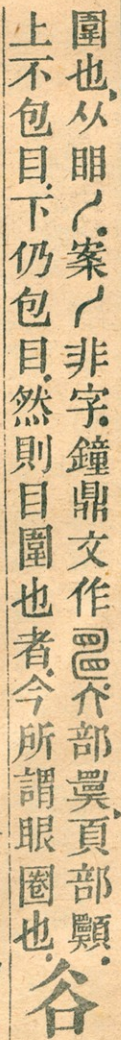 圍也从䀠𠃋案𠃋非字鐘鼎文作 大部𡙇頁部顨
上不包目下仍包目然則目圍也者今所謂眼圈也 㕣